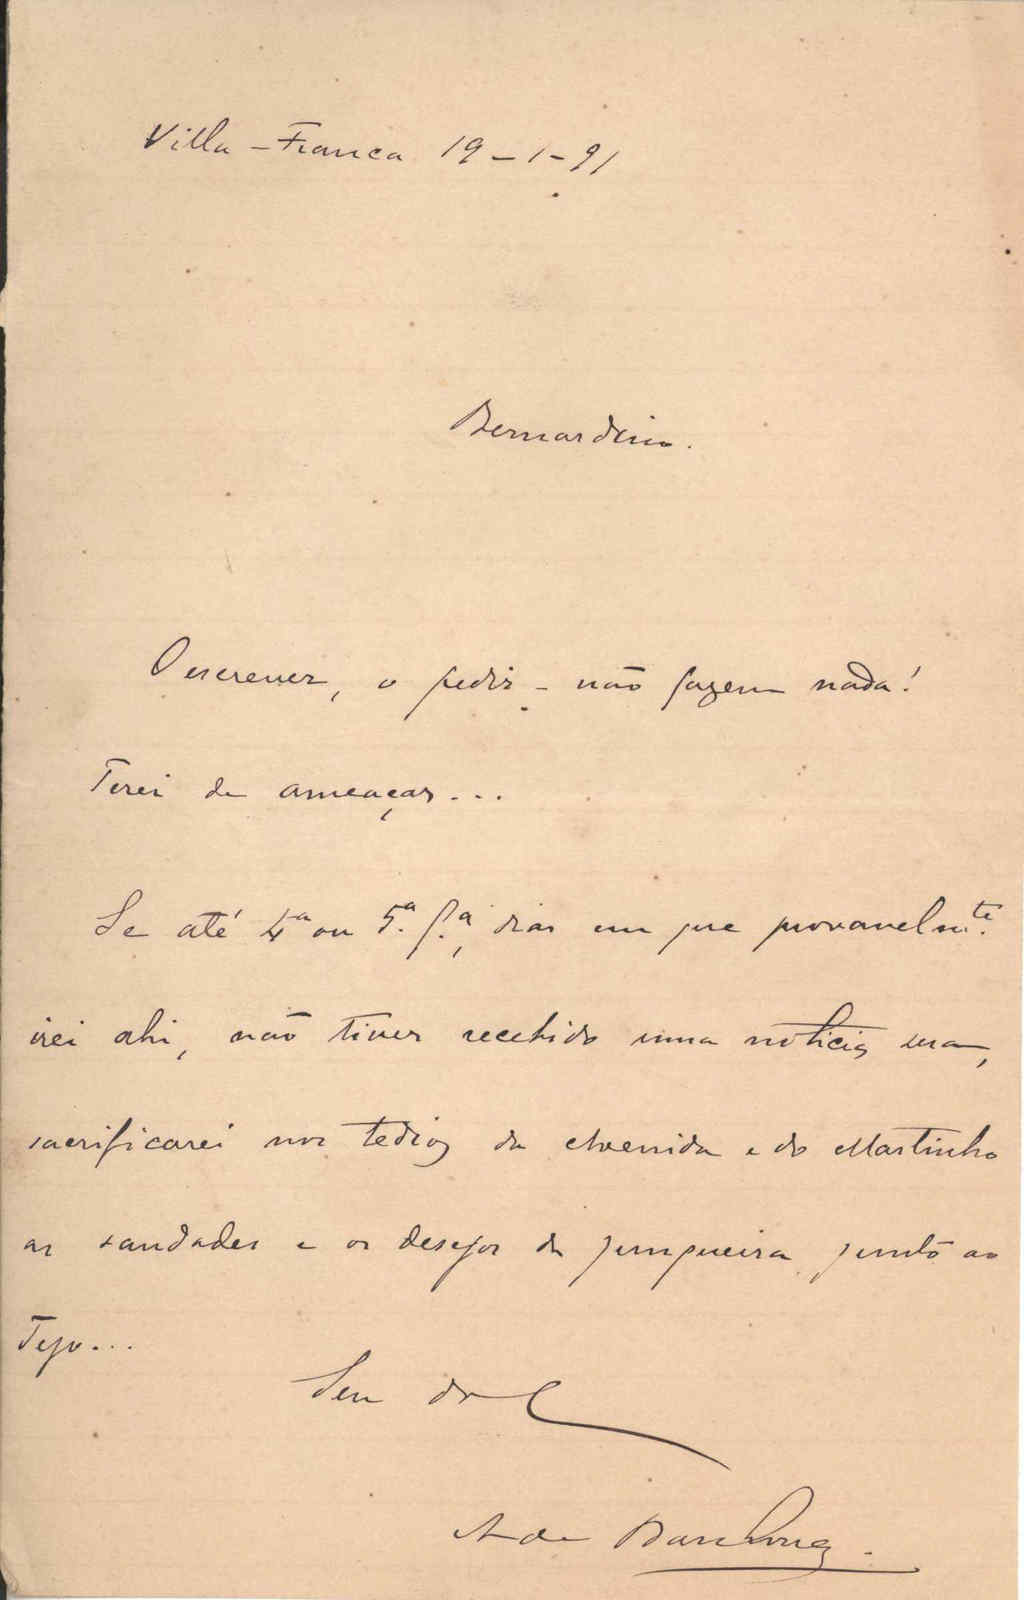 Villa-Franca 19-1-91
Bernardino.
O escrever, o pedir - não fazem nada!
Terei de ameaçar...
Se até 4ª ou 5ª. f.ª, dias em que provavelm.te
irei ahi, não tiver recebido uma noticia sua,
sacrificarei nos tedios da Avenida e do Martinho
as saudades e os desejos da Junqueira junto ao
Tejo...
Seu do C
A de